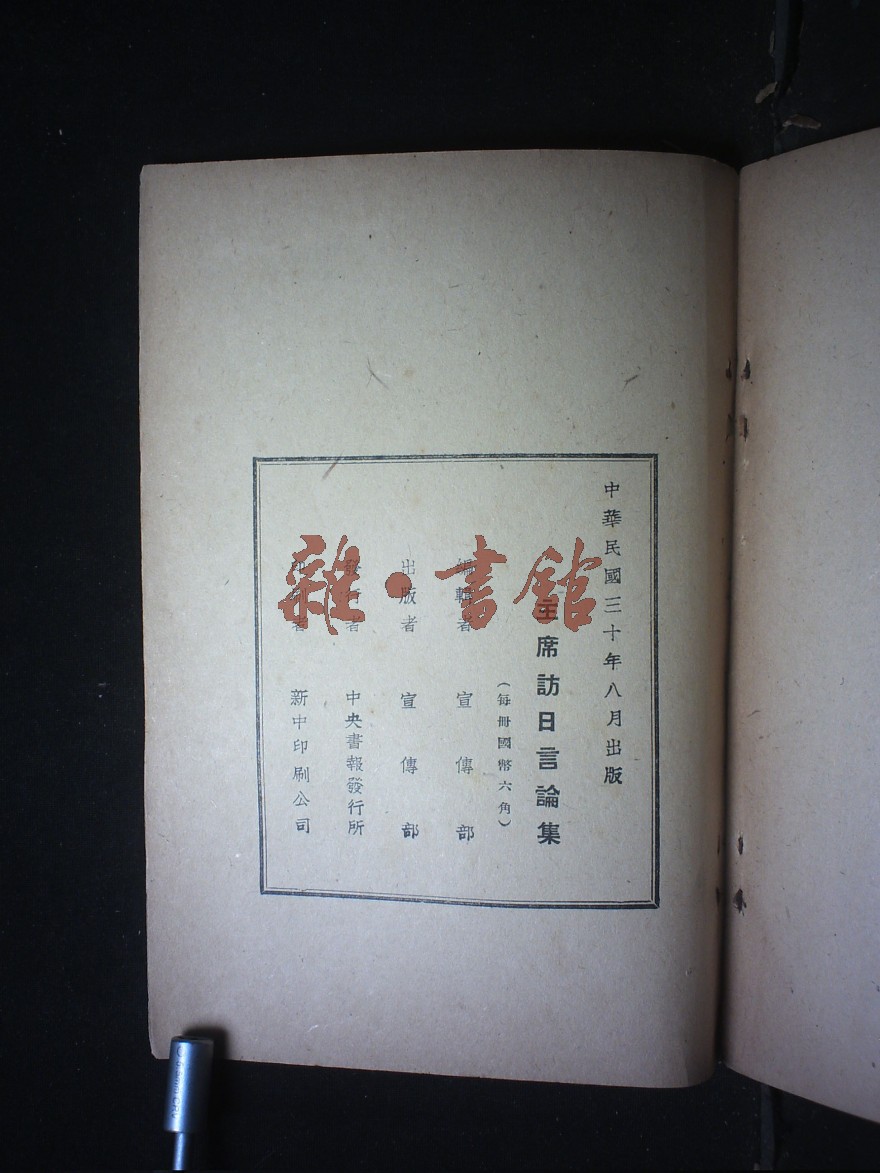 中華民國三十年八月出版
主席訪日言論集
(每冊國幣六角)
編輯者 宣傳部
出版者 宣傳部
發行者 中央書報發行所
印刷者 新中印刷公司
雜·書館